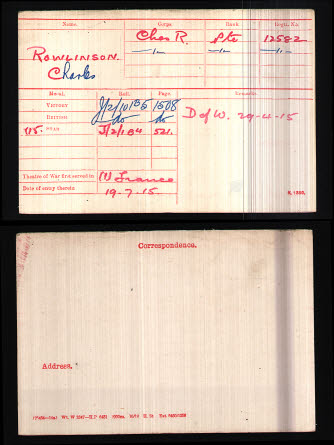 Name. Corps. Rank Regtl. No.
ROWLINSON. Ches R. Pte 12582
Charles —"— —"— —"—
Medal. Roll. Page. Remarks.
VICTORY J/2/101B5 1508 D of W. 29-4-15
BRITISH do do
'15 STAR J/2/1B4 521.
Theatre of War first served in (1) France
Date of entry therein 19.7.15.
K. 1380.
Correspondence.
Address.